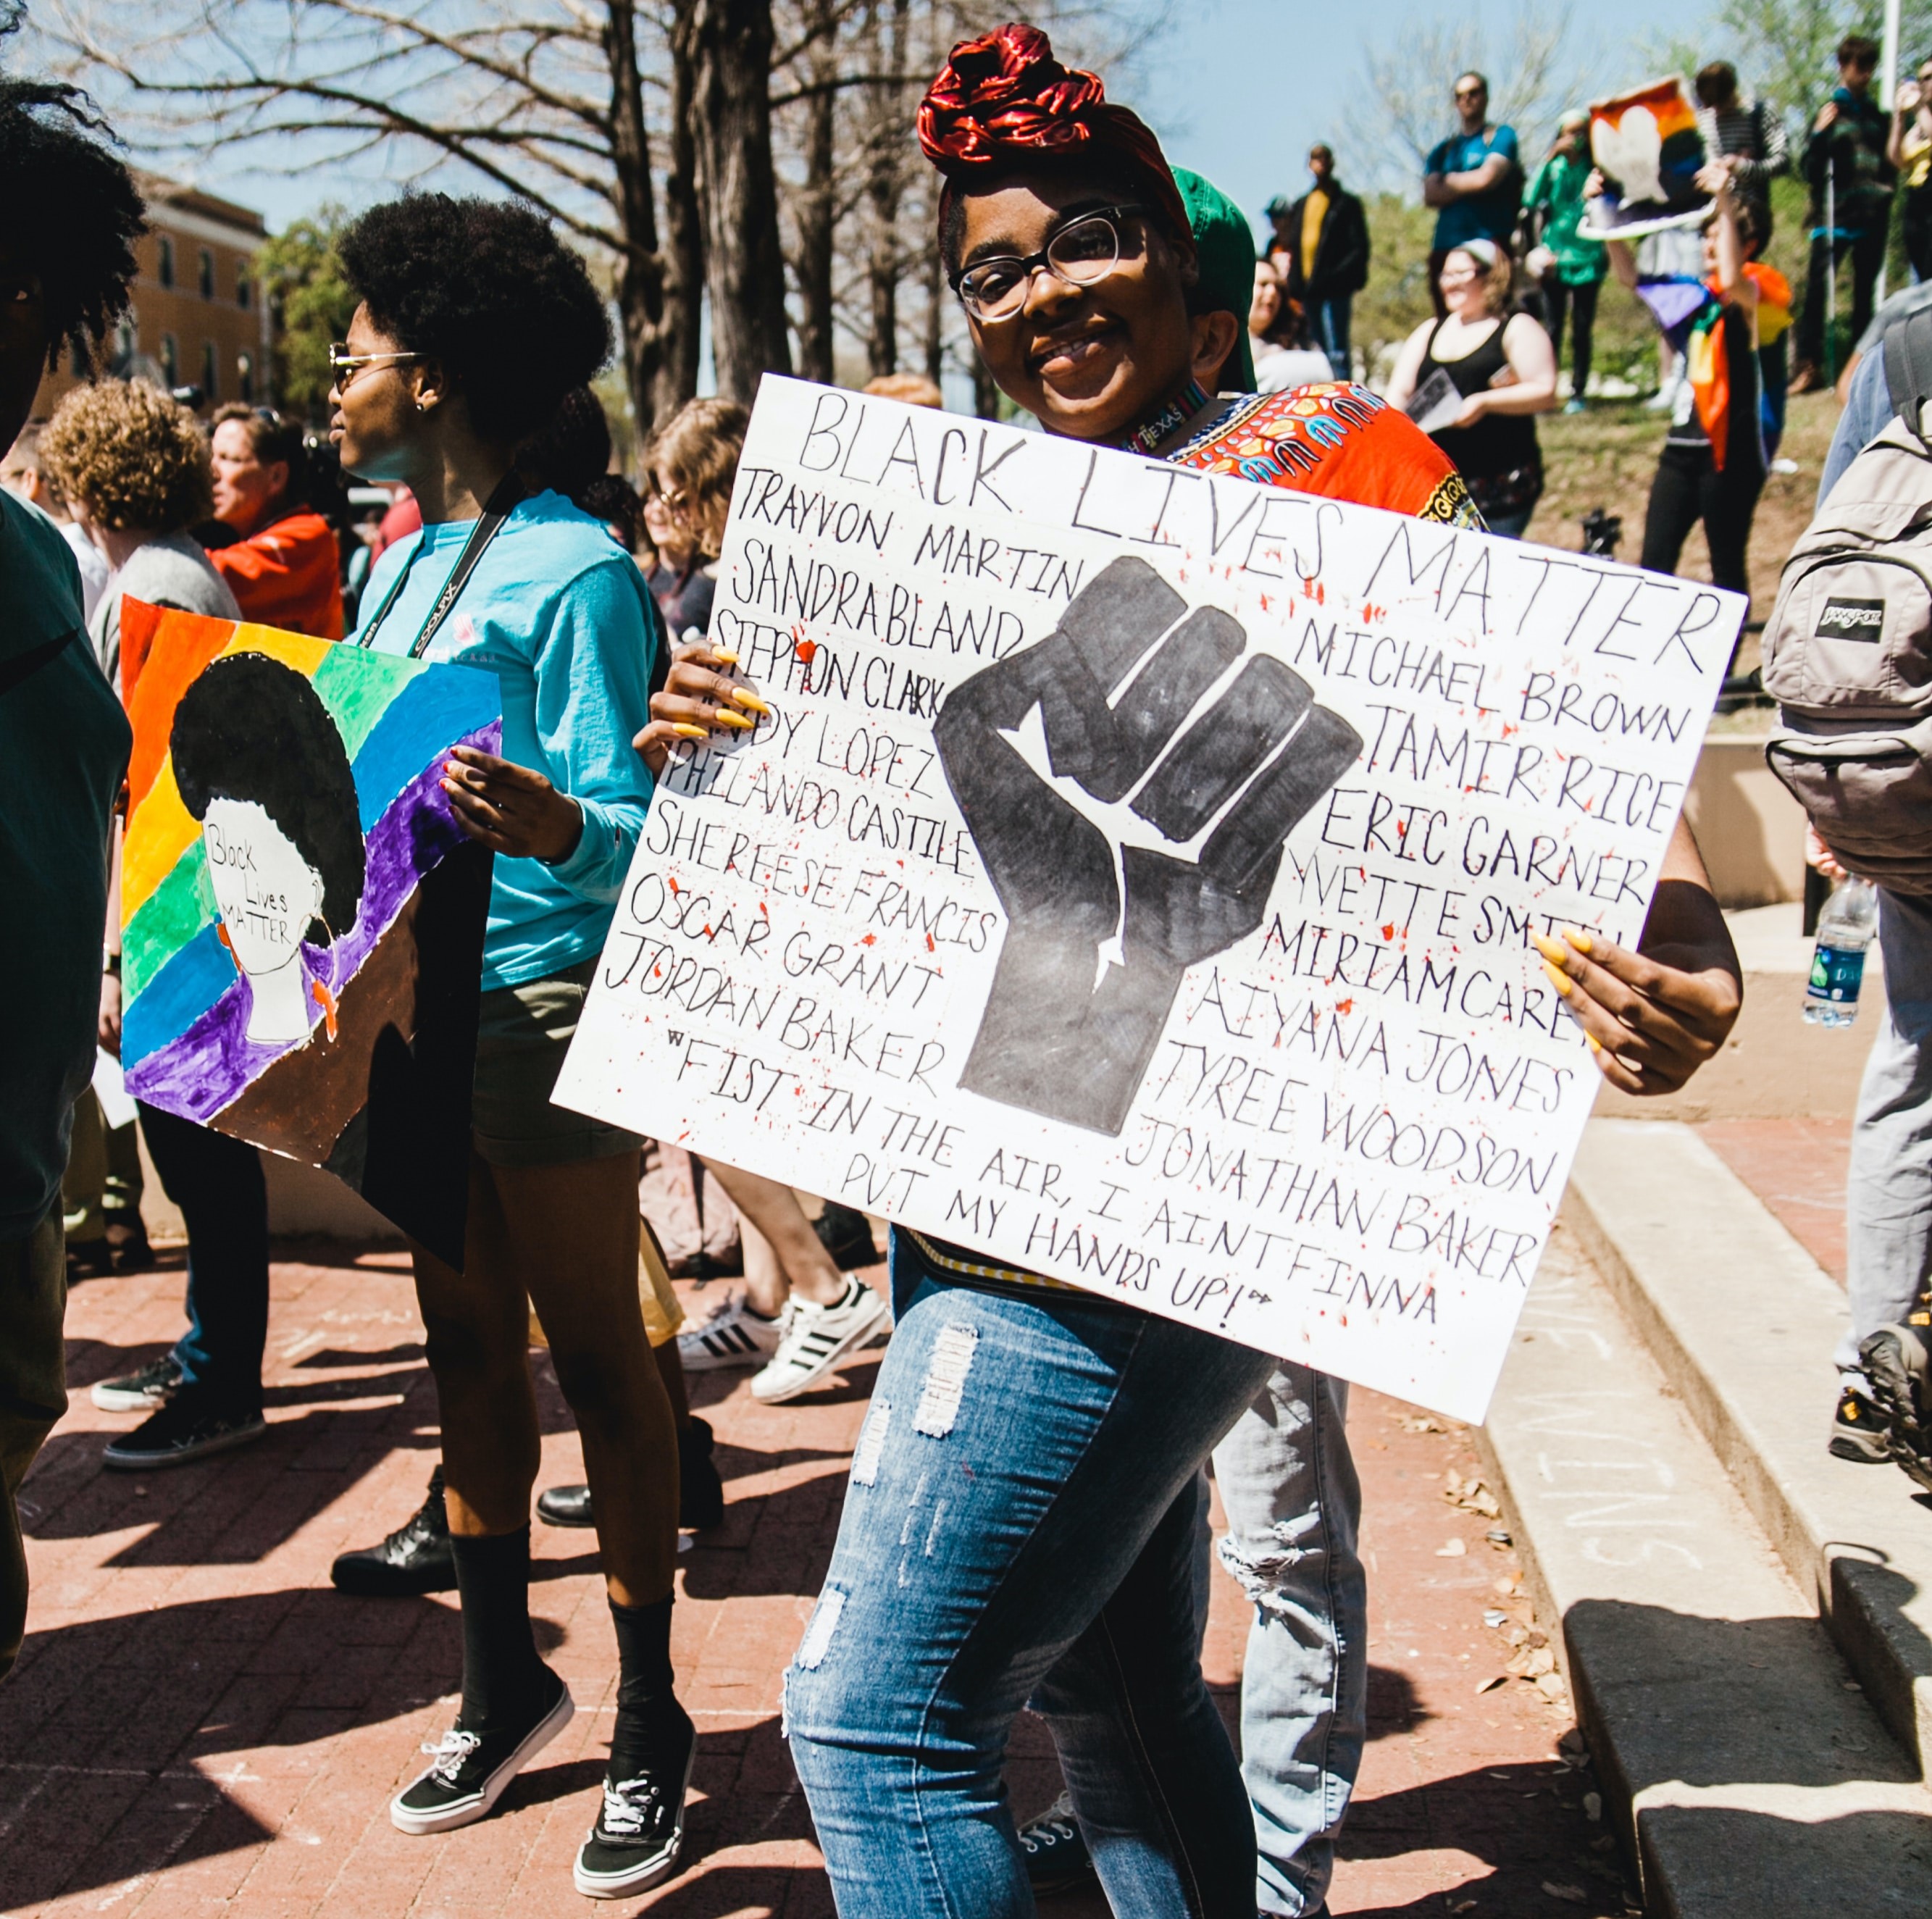 BLACK LIVES MATTER
TRAYVON MARTIN
SANDRA BLAND
STEPHON CLARK
LOPEZ
PHILANDO CASTILE
SHEREESE FRANCIS
OSCAR GRANT
JORDAN BAKER
MICHAEL BROWN
TAMIR RICE
ERIC GARNER
YVETTE SMITH
MIRIAM CAREY
AIYANA JONES
TYREE WOODSON
JONATHAN BAKER
"FIST IN THE AIR, I AINT FINNA
PUT MY HANDS UP!"
Black
Lives
MATTER
COOLPIX
TEXAS
JANSPORT
WINS